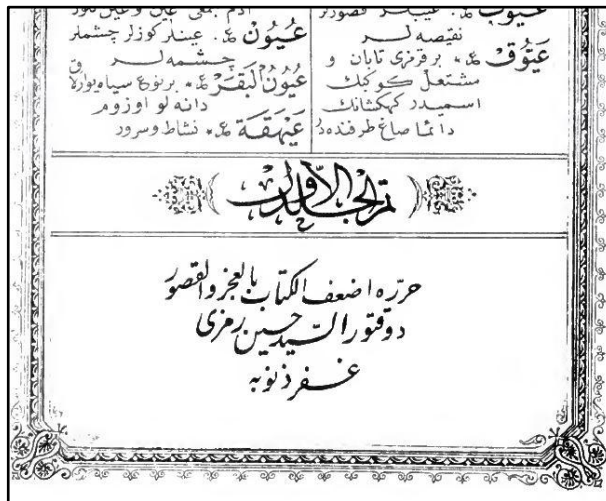 عيوب ع. عيبلر قصورلر
نقيصه لر
عيّوق ع. بر قرمزى تابان و
مشتعل كوچك
اسميدر كهكشانك
دائما صاغ طرفنده در
عيون ع. عينلر كوزلر چشملر
چشمه لر
عيون البقر ع. بر نوع سياه يوارلاق
دانه لو اوزوم
عيهقة ع. نشاط و سرور
تم الجلد الاول
حرره اضعف الكتاب بالعجز والقصور
دوقتور السيد حسين رمزى
غفر ذنوبه